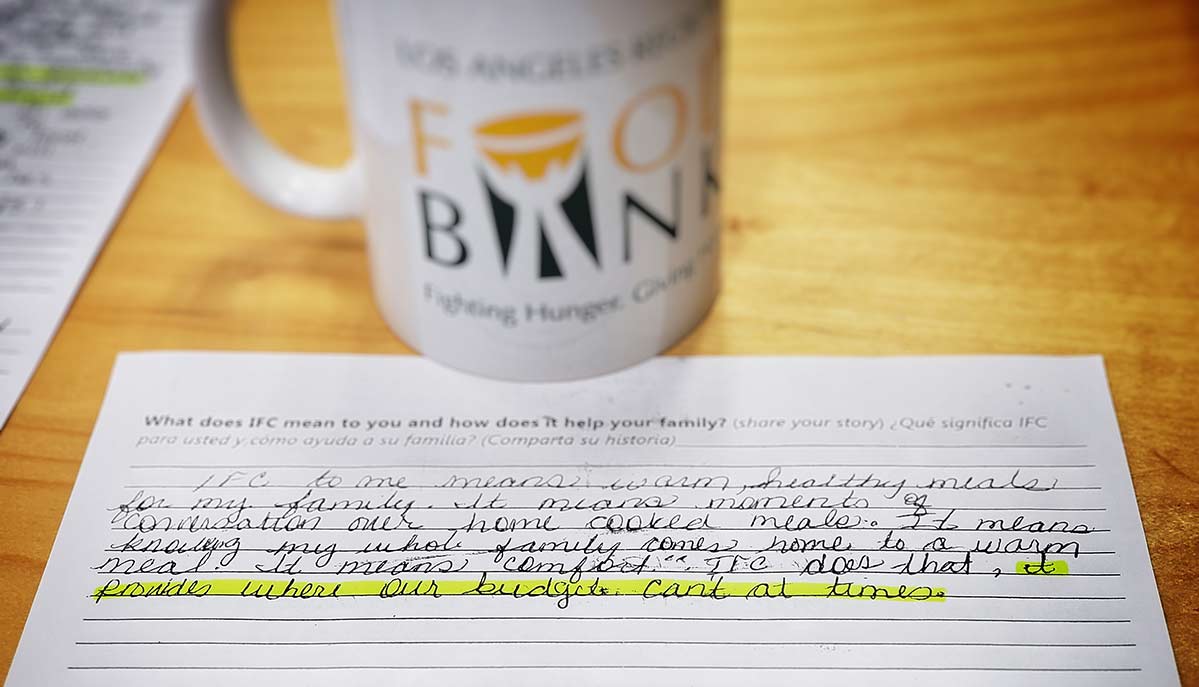 LOS ANGELES
FOO
BANK
Fighting Hunger. Giving
What does IFC mean to you and how does it help your family? (share your story) ¿Qué significa IFC
para usted y cómo ayuda a su familia? (Comparta su historia)
IFC to me means warm, healthy meals
for my family. It means moments of
conversation over home cooked meals. It means
knowing my whole family comes home to a warm
meal. It means comfort. IFC does that, it
provides where our budget cant at times.